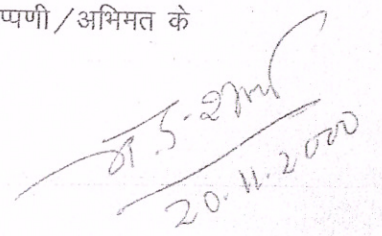 प्पणी / अभिमत के
20.11.2000